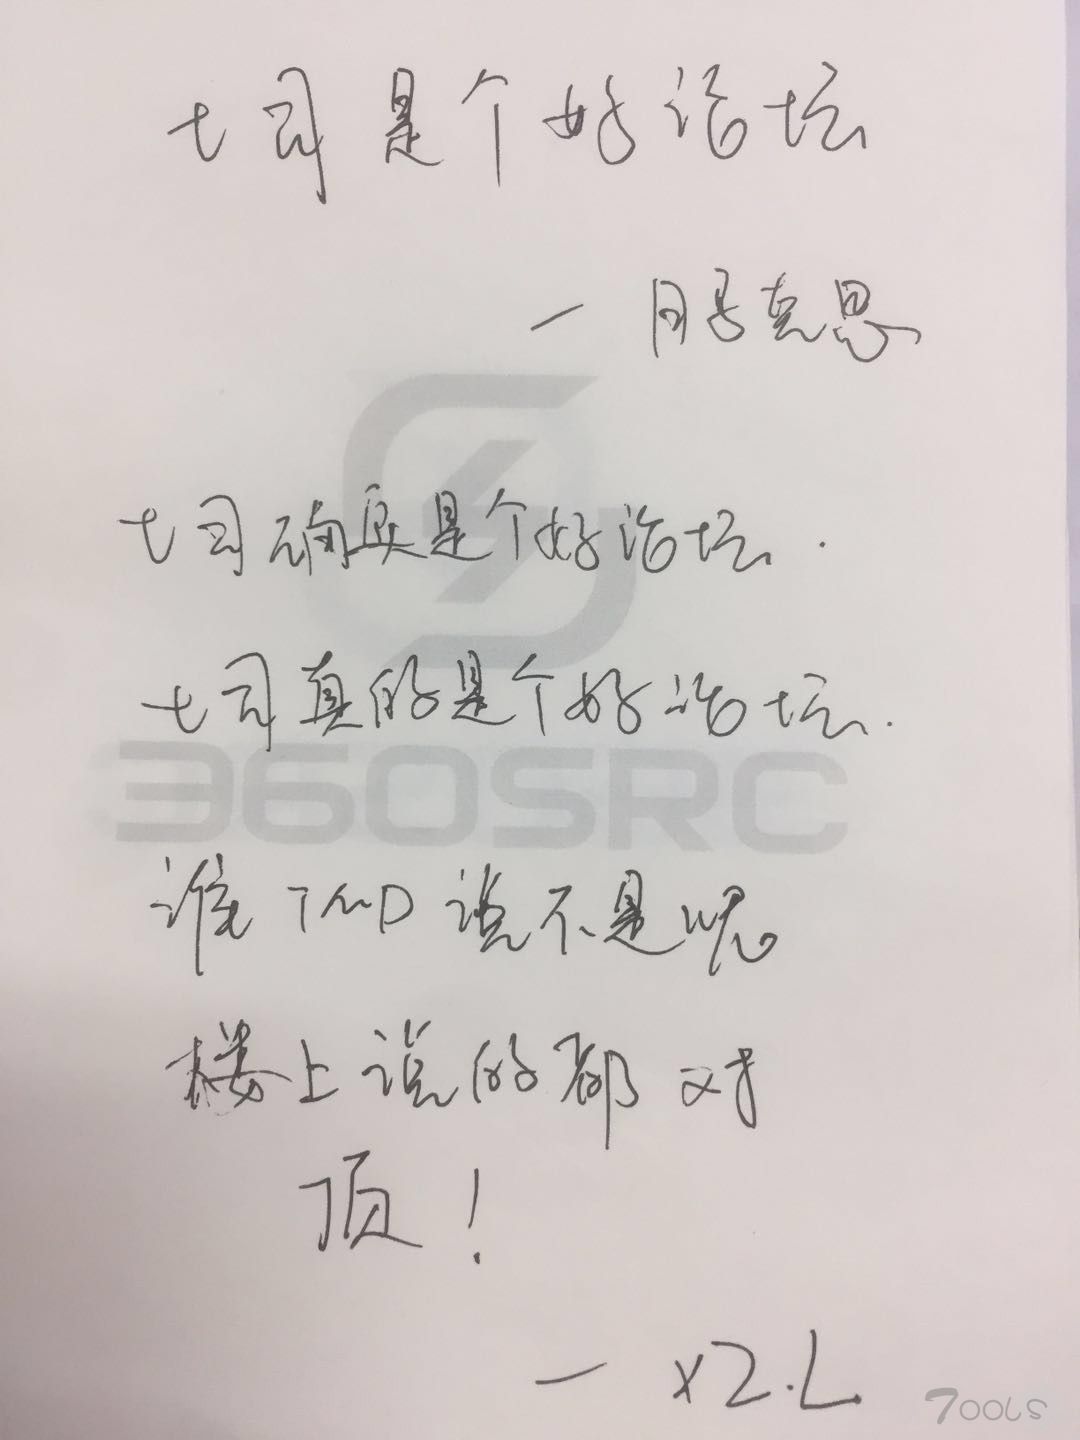 土司是个好论坛
— 月马克思
土司确实是个好论坛.
土司真的是个好论坛.
360SRC
谁TMD说不是呢
楼上说的都对
顶!
— xz.L
7OOLS